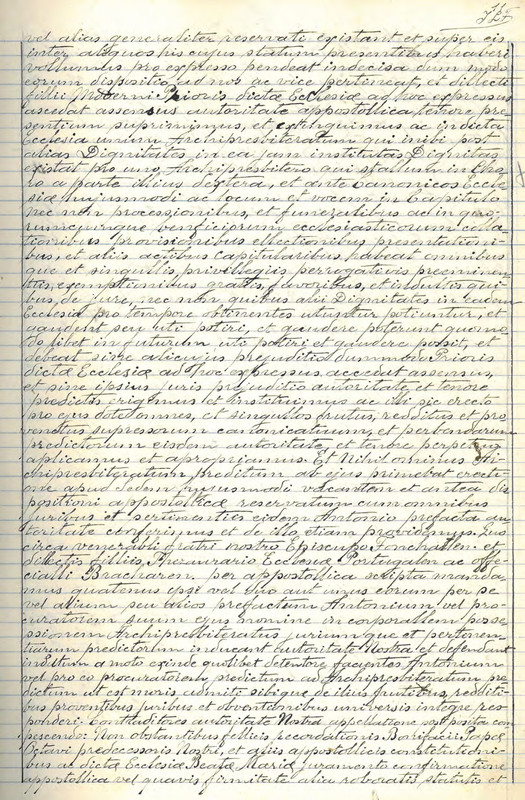 vel alias generaliter reservati existant et super eis
inter aliquos his cujus statum presentibus haberi
volumus pro expresso pendeat indecisa dum modo
eorum dispositio ad nos ac vice pertineat, et dillecti
fillii Moderni Prioris dictæ Ecclesiæ ad hoc expressus
accedat assensus autoritate appostollica, tenore pre
sentium suprimimus, et extinguimus ac in dicta
Ecclesia unum Archipresbiteratum qui inibi post
alias Dignitates in ea jam institutas Dignitas
existat pro uno Archipresbitero qui stallum in Cho
ro a parte illius dextera, et ante Canonicos Eccle
siæ hujusmodi ac locum et vocem in Capitulo
nec non processionibus, et funeralibus ac in qui
buscumque beneficiorum ecclesiasticorum colla
tionibus provisionibus ellectionibus presentationi
bus, et aliis actibus Capitularibus habeat omnibus
que et singullis privillegiis perrogativis preeminen
tiis, exemptionibus gratiis, favoribus, et indultis qui
bus, de jure, nec non quibus alii Dignitates in eadem
Ecclesia pro tempore obtinentes utuntur potiuntur, et
gaudent seu uti potiri, et gaudere poterunt quomo
do libet in futurum uti potiri et gaudere possit, et
debeat sine alicujus prejuditio dummodo Prioris
dictæ Ecclesiæ ad hoc expressus accedat assensus,
et sine ipsius juris prejuditio autoritate, et tenore
predictis erigimus et instituimus ac illi sic erecto
pro ejus dote omnes, et singullos fructus, redditus et pro
ventus supressorum canonicatuum, et perbendarum
predictorum eisdem autoritate, et tenore perpetuo
aplicamus et apropriamus. Et Nihil ominus Ar
chipresbiteratum preditum ab ejus primeva erecti
one apud sedem hujusmodi vacantem et antea dis
positioni appostollicæ reservatum cum omnibus
juribus et pertinentiis eidem Antonio prefacta au
toritate conferimus et de illo etiam providemus. Quo
circa venerabli fratri nostro Episcopo Fonchallen. et
dilectis filliis, Thesaurario Ecclesiæ Portugalen ac offi
cialli Bracharen. per appostollica scripta manda
mus quatenus ipsi vel duo aut unus eorum per se
vel allium seu alios prefactum Antonium, vel pro
curatorem suum ejus nomine in corporallem posse
ssionem Archipresbiteratus juriumque et pertinen
tiarum predictorum inducant autoritate Nostra et defendant
inditum amoto exinde quolibet detentore facientes Antonium
vel pro eo procuratorem predictum ad Archipresbiteratum pre
dictum ut est moris admiti sibique de illius fructibus, redditi
bus proventibus juribus et obventionibus universis integre res
ponderi: Contraditores autoritate Nostra appellatione sost posita com
pescendo: Non obstantibus fellicis recordationis Bonifacii Papæ
Octavi predecessoris Nostri, et aliis appostollicis constetutioni
bus ac dictæ Ecclesiæ Beatæ Mariæ juramento confirmatione
appostollica vel quavis firmitate alia roboratis, statutis et